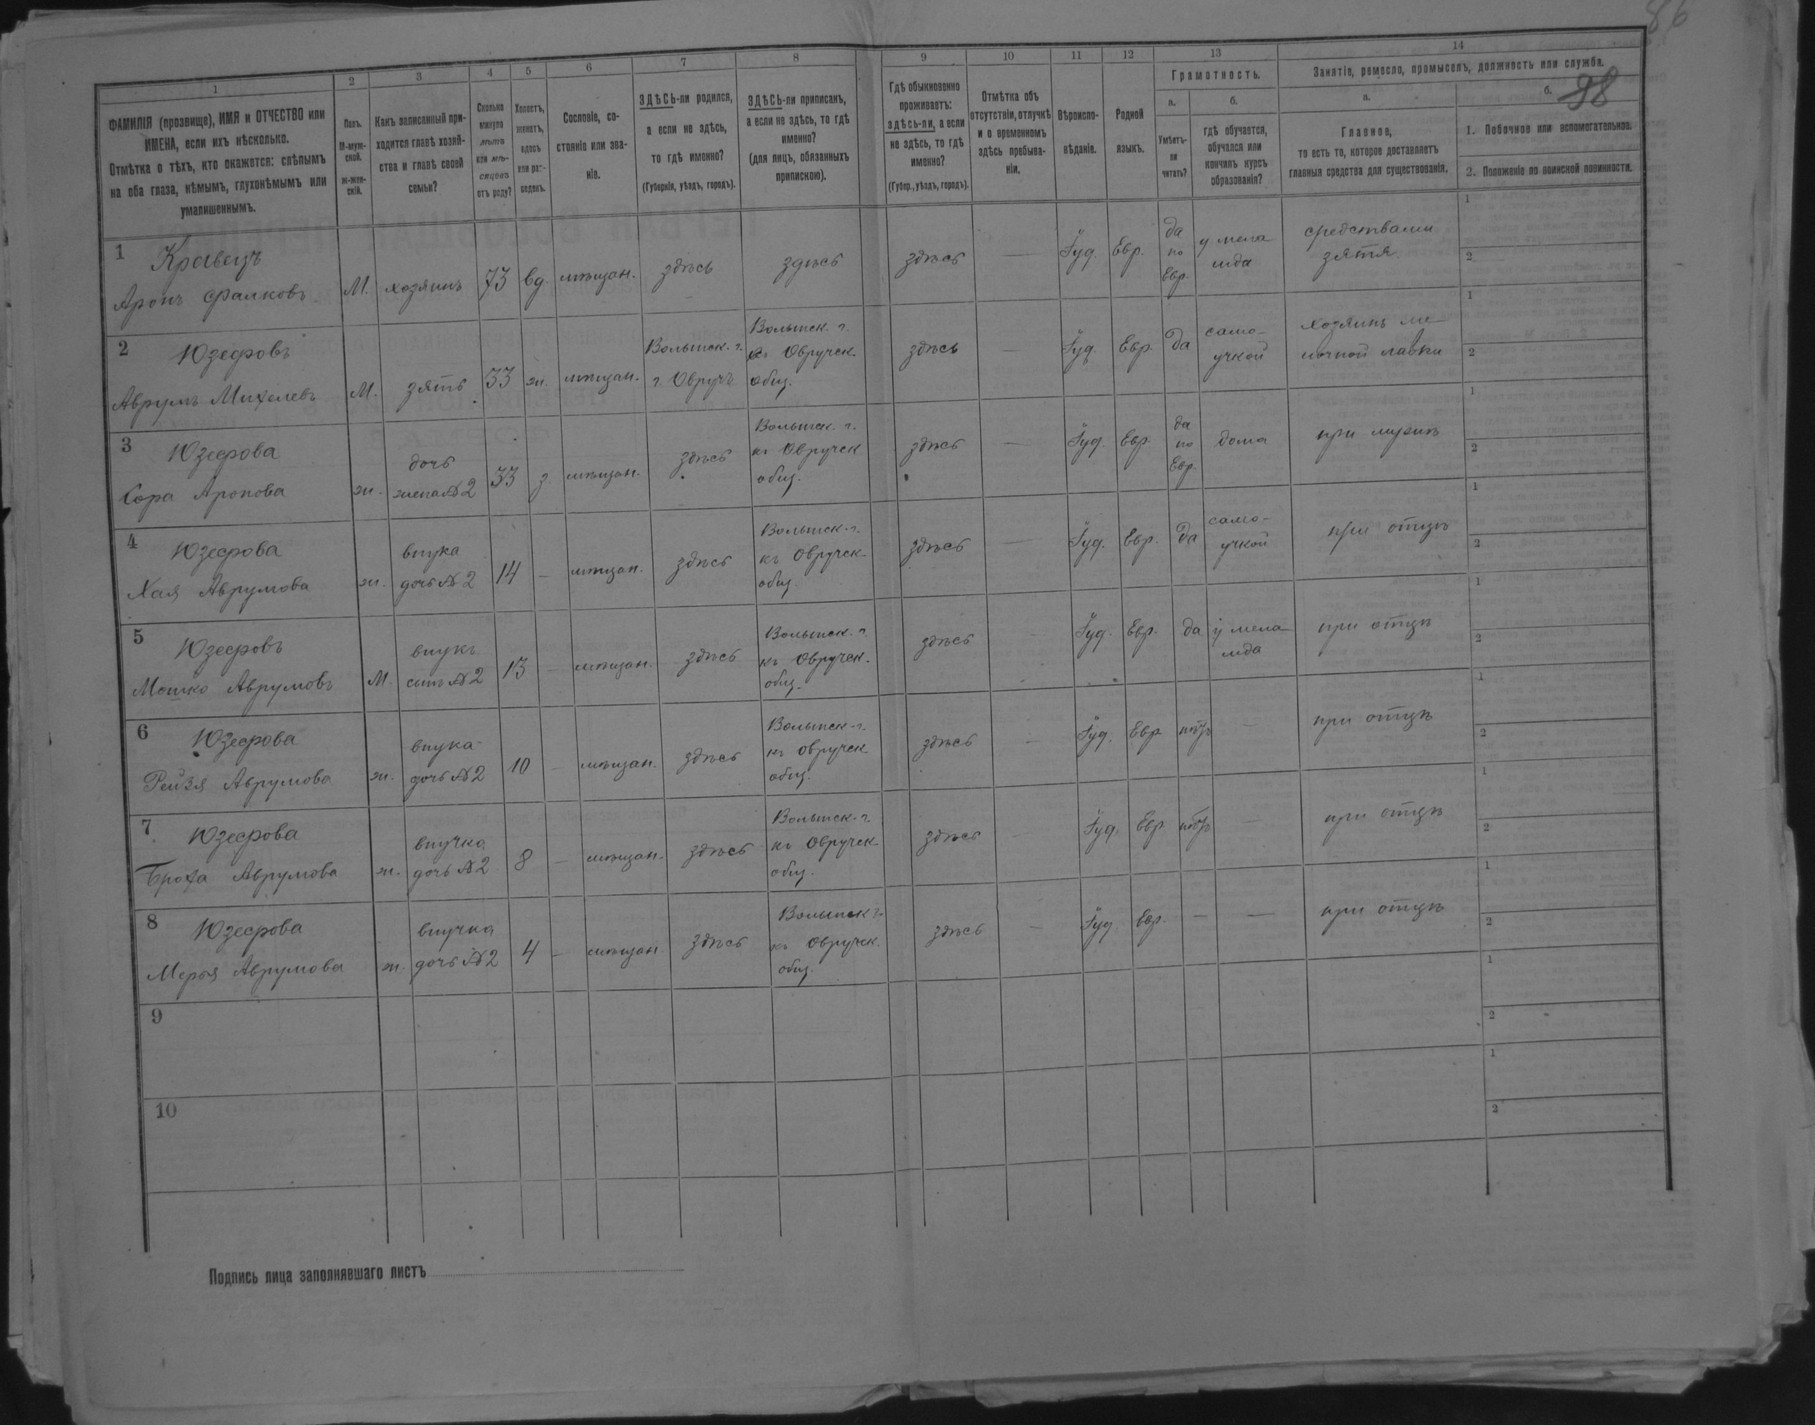 86
98
1
2
3
4
5
6
7
8
9
10
11
12
13
14
ФАМИЛІЯ (прозвище), ИМЯ и ОТЧЕСТВО или
ИМЕНА, если ихъ нѣсколько.
Отмѣтка о тѣхъ, кто окажется: слѣпымъ
на оба глаза, нѣмымъ, глухонѣмымъ или
умалишеннымъ.
Полъ.
М-муж-
ской.
ж-жен-
скій.
Какъ записанный при-
ходится главѣ хозяй-
ства и главѣ своей
семьи?
Сколько
минуло
лѣтъ
или мѣ-
сяцевъ
отъ роду?
Холостъ,
женатъ,
вдовъ
или раз-
веденъ.
Сословіе, со-
стояніе или зва-
ніе.
ЗДѢСЬ-ли родился,
а если не здѣсь,
то гдѣ именно?
(Губернія, уѣздъ, городъ).
ЗДѢСЬ-ли приписанъ,
а если не здѣсь, то гдѣ
именно?
(для лицъ, обязанныхъ
припискою).
Гдѣ обыкновенно
проживаетъ:
здѣсь-ли, а если
не здѣсь, то гдѣ
именно?
(Губер., уѣздъ, городъ).
Отмѣтка объ
отсутствіи, отлучкѣ
и о временномъ
здѣсь пребыва-
ніи.
Вѣроиспо-
вѣданіе.
Родной
языкъ.
Грамотность.
а.
Умѣетъ-
ли
читать?
б.
гдѣ обучается,
обучался или
кончилъ курсъ
образованія?
Занятіе, ремесло, промыселъ, должность или служба.
а.
Главное,
то есть то, которое доставляетъ
главныя средства для существованія.
б.
1. Побочное или вспомогательное.
2. Положеніе по воинской повинности.
1 Кравецъ
Аронъ Фалковъ М. хозяинъ 73 вд. мѣщан. здѣсь здѣсь здѣсь — Іуд. Евр. да по Евр. у мела- мда средствами зятя 1 2
2 Юзефовъ
Аврумъ Михелевъ М. зять 33 ж. мѣщан. Волынск. г. г. Овручъ Волынск. г. къ Овручск. общ. здѣсь — Іуд. Евр. да само- учкой хозяинъ ме- лочной лавки 1 2
3 Юзефова
Сора Аронова ж. дочь жена №2 33 з мѣщан. здѣсь Волынск. г. къ Овручск. общ. здѣсь — Іуд. Евр. да по Евр. дома при мужѣ 1 2
4 Юзефова
Хая Аврумова ж. внука дочь №2 14 — мѣщан. здѣсь Волынск. г. къ Овручск. общ. здѣсь — Іуд. Евр. да само- учкой при отцѣ 1 2
5 Юзефовъ
Мошко Аврумовъ М. внукъ сынъ №2 13 — мѣщан. здѣсь Волынск. г. къ Овручск. общ. здѣсь Іуд. Евр. да у мела- мда при отцѣ 1 2
6 Юзефова
Рейзя Аврумова ж. внука дочь №2 10 — мѣщан. здѣсь Волынск. г. къ Овручск общ. здѣсь — Іуд. Евр нѣтъ — при отцѣ 1 2
7 Юзефова
Броха Аврумова ж. внучка дочь №2 8 — мѣщан. здѣсь Волынск. г. къ Овручск общ. здѣсь — Іуд. Евр нѣтъ — при отцѣ 1 2
8 Юзефова
Мерья Аврумова ж. внучка дочь №2 4 — мѣщан. здѣсь Волынск г. къ Овручск. общ. здѣсь — Іуд. Евр. — — при отцѣ 1 2
9 1 2
10 1 2
Подпись лица заполнявшаго листъ